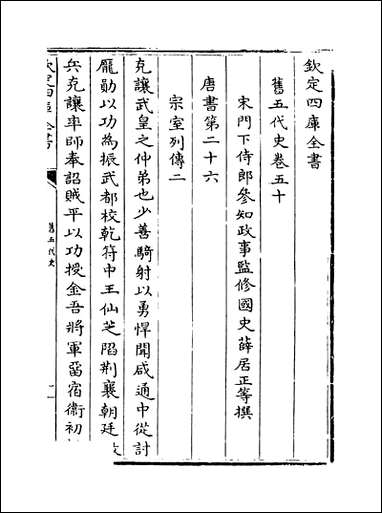 欽定四庫全書
舊五代史卷五十
宋門下侍郎參知政事監修國史薛居正等撰
唐書第二十六
宗室列傳二
克讓武皇之仲弟也少善騎射以勇悍聞咸通中從討
龐勛以功為振武都校乾符中王仙芝陷荆襄朝廷
兵克讓率師奉詔賊平以功授金吾將軍留宿衛初
欽定四庫全書
舊五代史